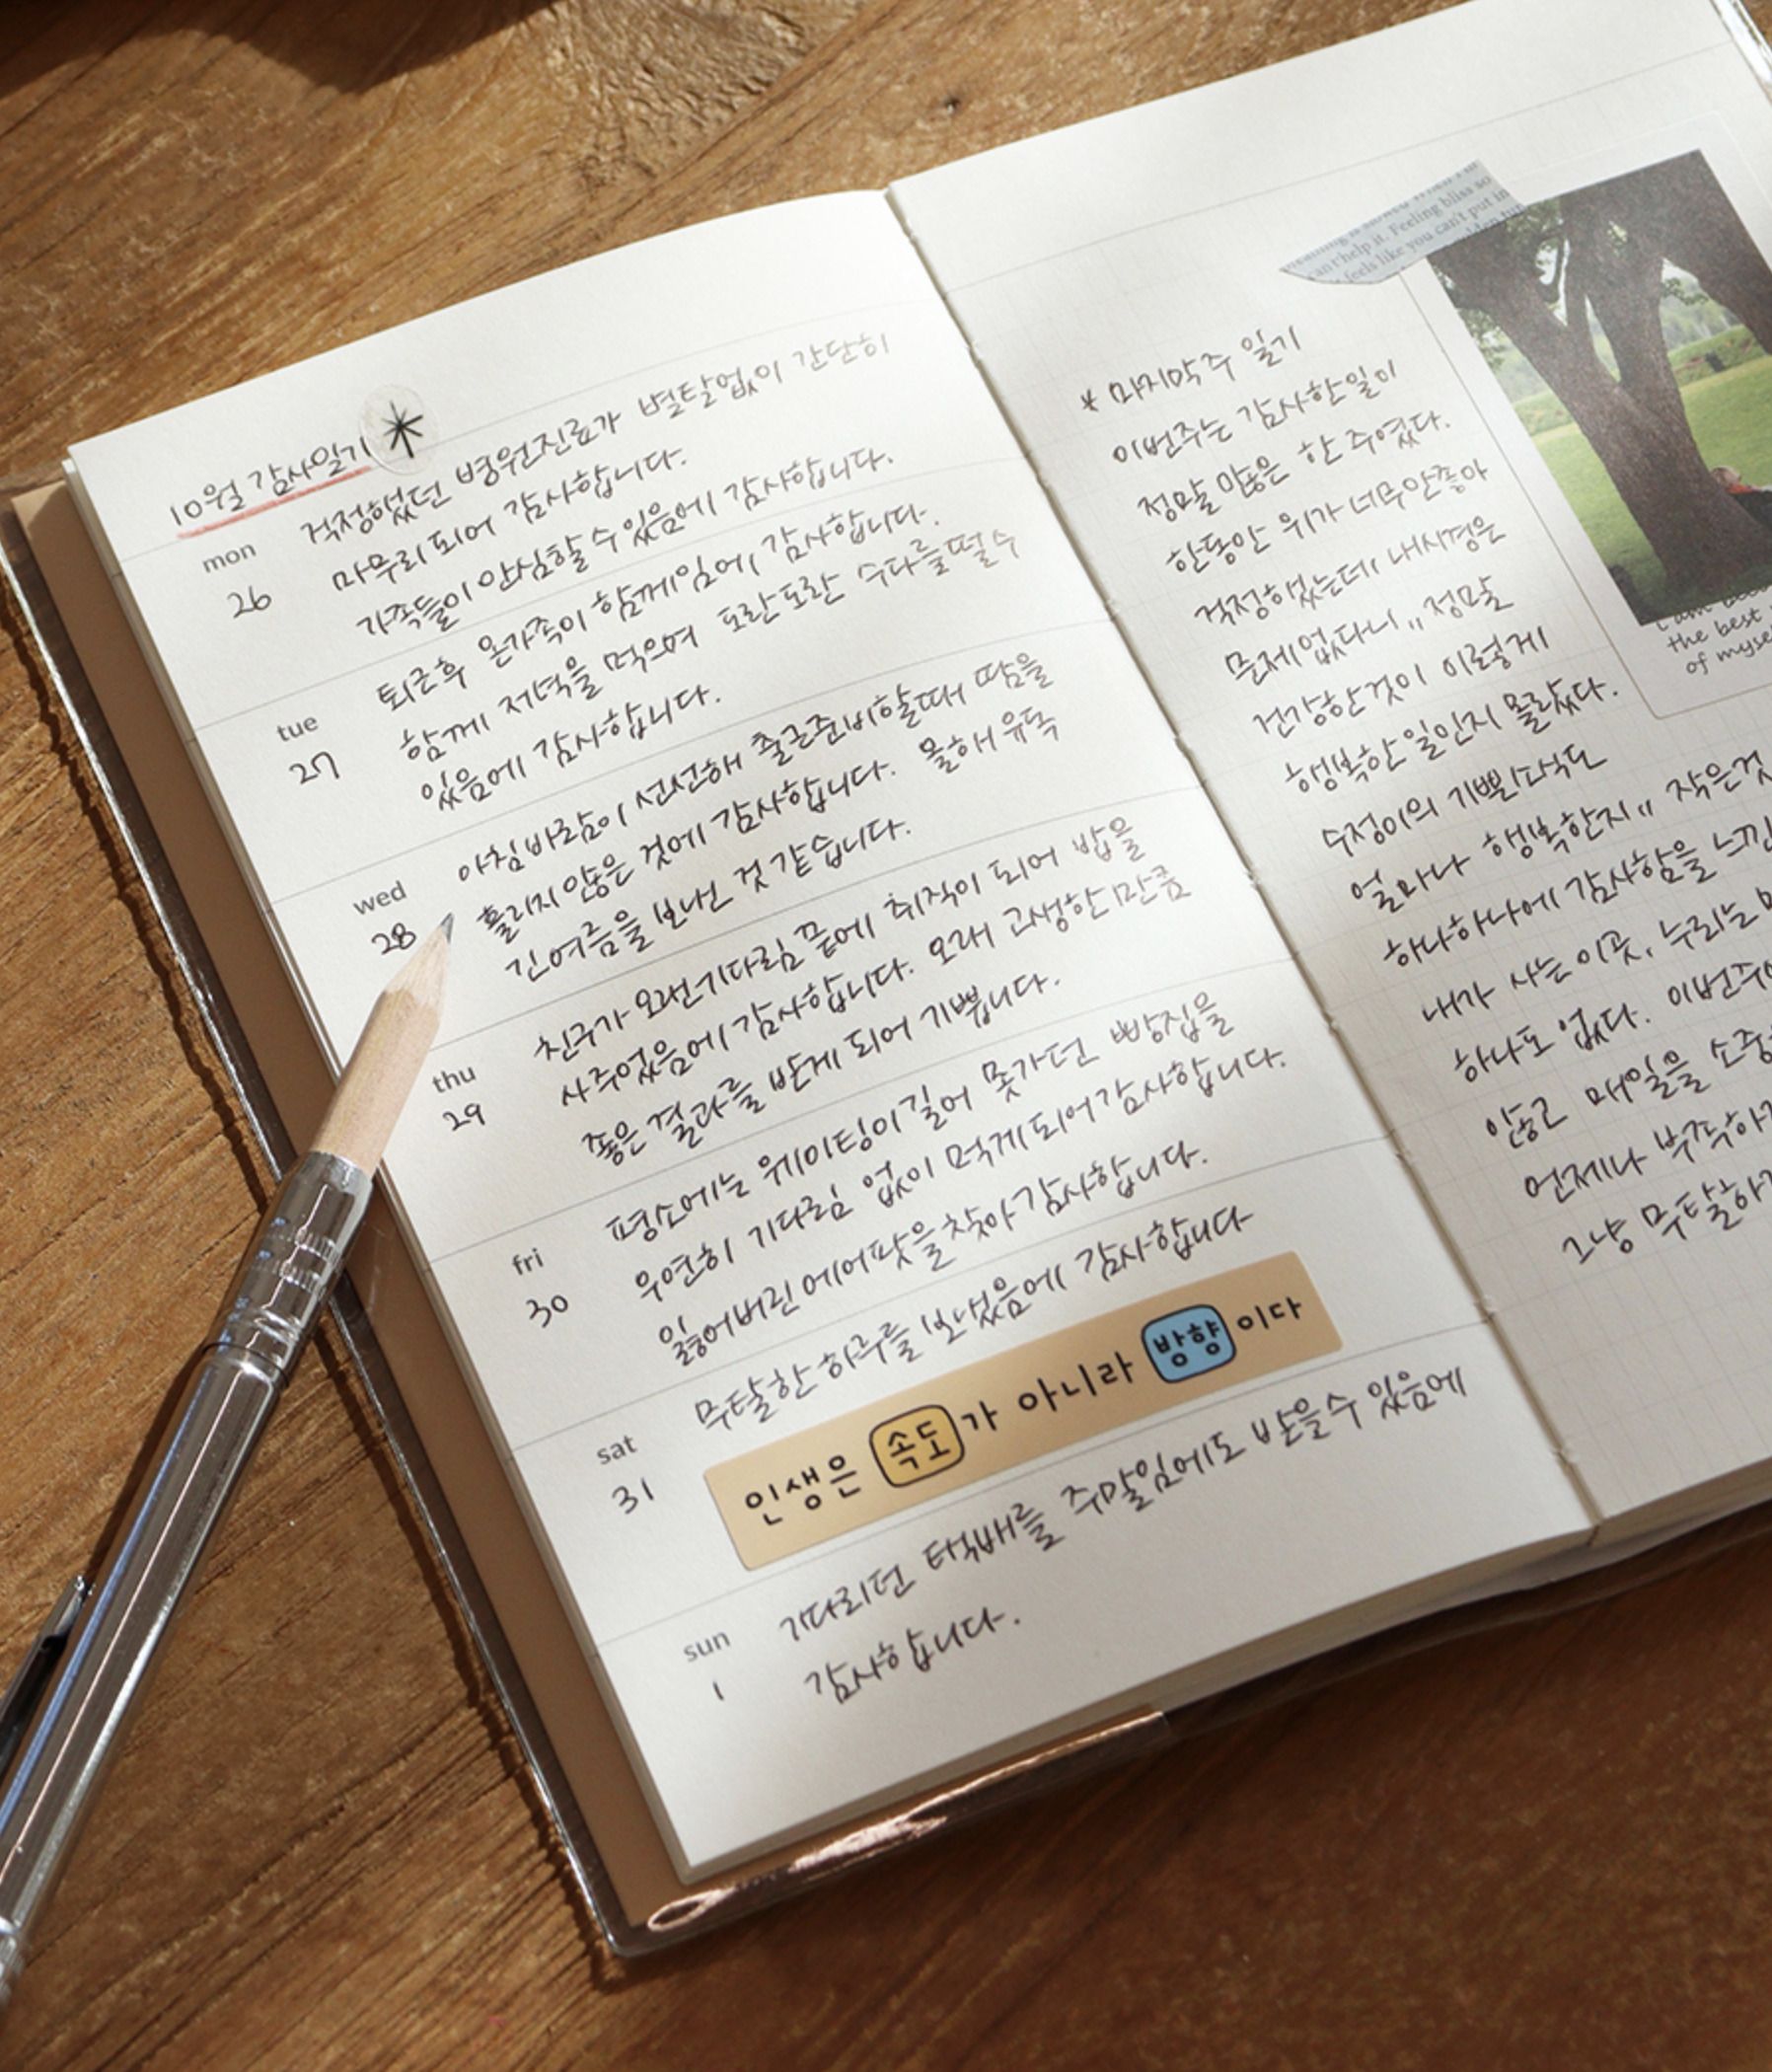 10월 감사일기
mon
26
걱정했던 병원진료가 별탈없이 간단히
마무리 되어 감사합니다.
가족들이 안심할 수 있음에 감사합니다.
tue
27
퇴근후 온가족이 함께임에 감사합니다.
함께 저녁을 먹으며 도란도란 수다를 떨 수
있음에 감사합니다.
wed
28
아침바람이 선선해 출근준비할때 땀을
흘리지 않은 것에 감사합니다. 올해 유독
긴여름을 보내는 것 같습니다.
thu
29
친구가 오랜기다림 끝에 취직이 되어 밥을
사주었음에 감사합니다. 오래 고생한 만큼
좋은 결과를 받게 되어 기쁩니다.
fri
30
평소에는 웨이팅이 길어 못가던 빵집을
우연히 기다림 없이 먹게되어 감사합니다.
잃어버린 에어팟을 찾아 감사합니다.
sat
31
무탈한 하루를 보냈음에 감사합니다
인생은 속도가 아니라 방향이다
sun
1
기다리던 택배를 주말임에도 받을수 있음에
감사합니다.
* 마지막주 일기
이번주는 감사한일이
정말 많은 한 주였다.
한동안 위가 너무안좋아
걱정했는데 내시경은
문제없다니,, 정말
건강한것이 이렇게
행복한 일인지 몰랐다.
수정이의 기쁜소식도
얼마나 행복한지,, 작은것
하나하나에 감사함을 느낀
내가 사는 이곳, 누리는
하나도 없다. 이번주
않고 매일을 소중
언제나 부족하
그냥 무탈하
can't help it. Feeling bliss so
feels like you can't put in
the best
of myse